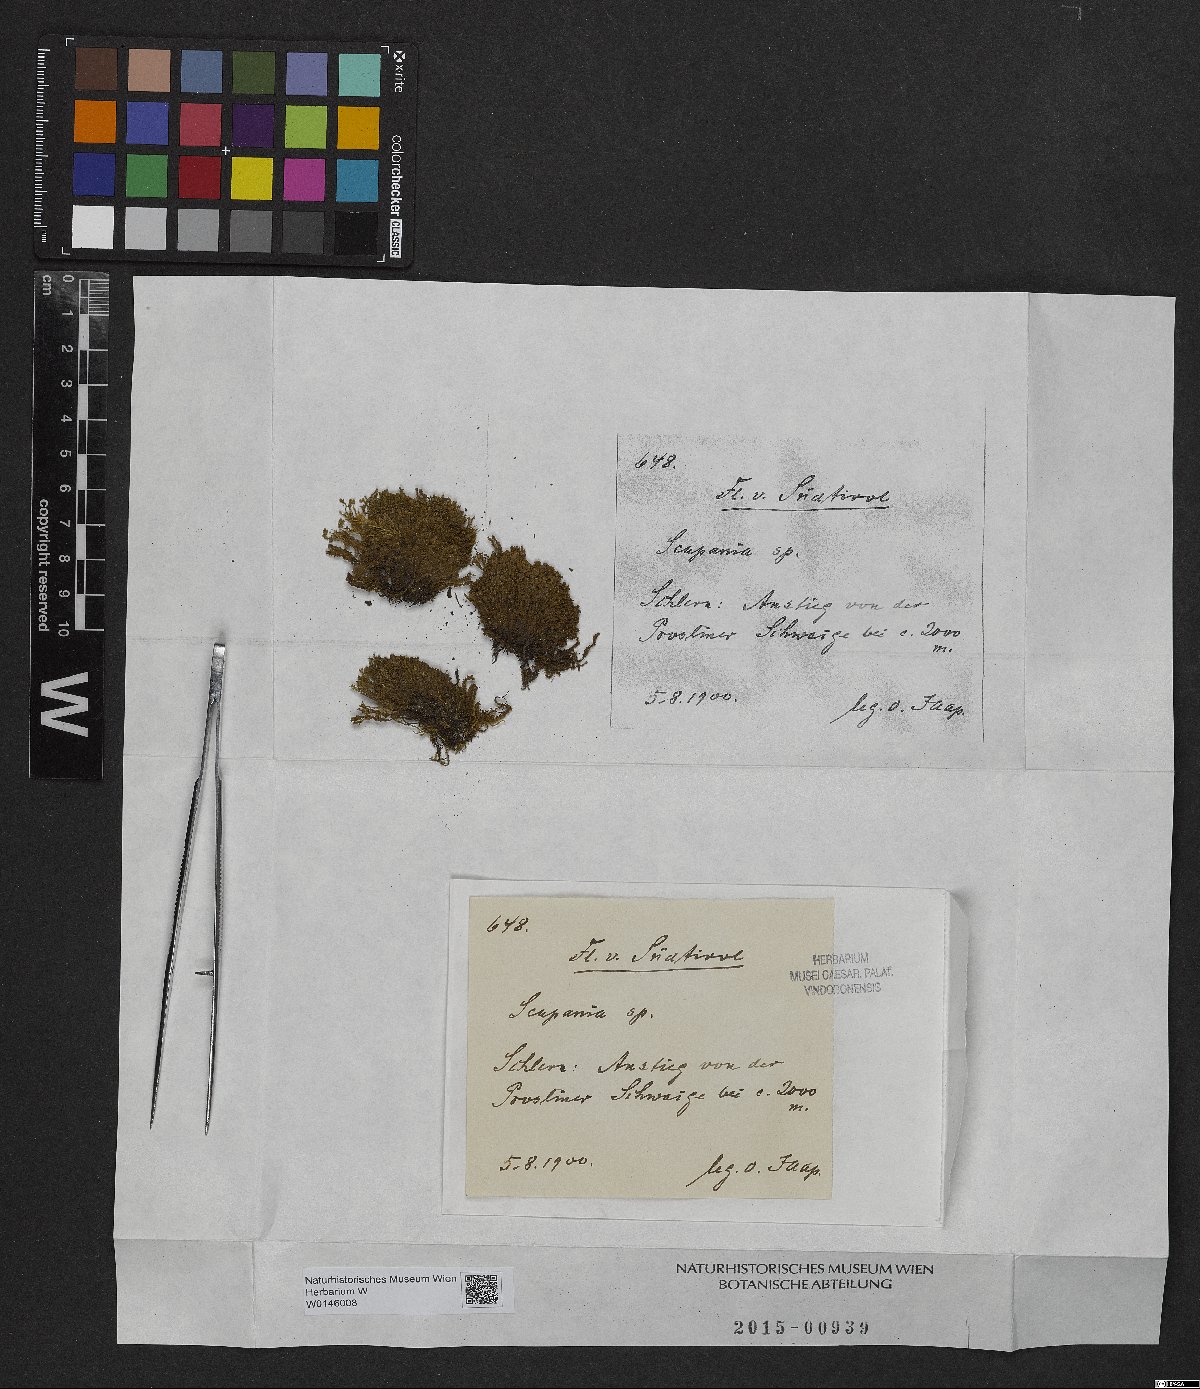 x-rite
colorchecker CLASSIC
cm 0 1 2 3 4 5 6 7 8 9 10
copyright reserved
W
648.
Fl. v. Südtirol
Scapania sp.
Schlern: Anstieg von der
Prosliner Schwaige bei c. 2000
m.
5.8.1900.
leg. O. Jaap.
648.
Fl. v. Südtirol
HERBARIUM
MUSEI CAESAR. PALAT.
VINDOBONENSIS
Scapania sp.
Schlern: Anstieg von der
Prosliner Schwaige bei c. 2000
m.
5.8.1900.
leg. O. Jaap.
Naturhistorisches Museum Wien
Herbarium W
W0146008
NATURHISTORISCHES MUSEUM WIEN
BOTANISCHE ABTEILUNG
2015-00939